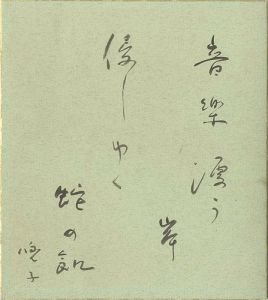 音樂漂う
岸
侵しゆく
蛇の飢
兜子